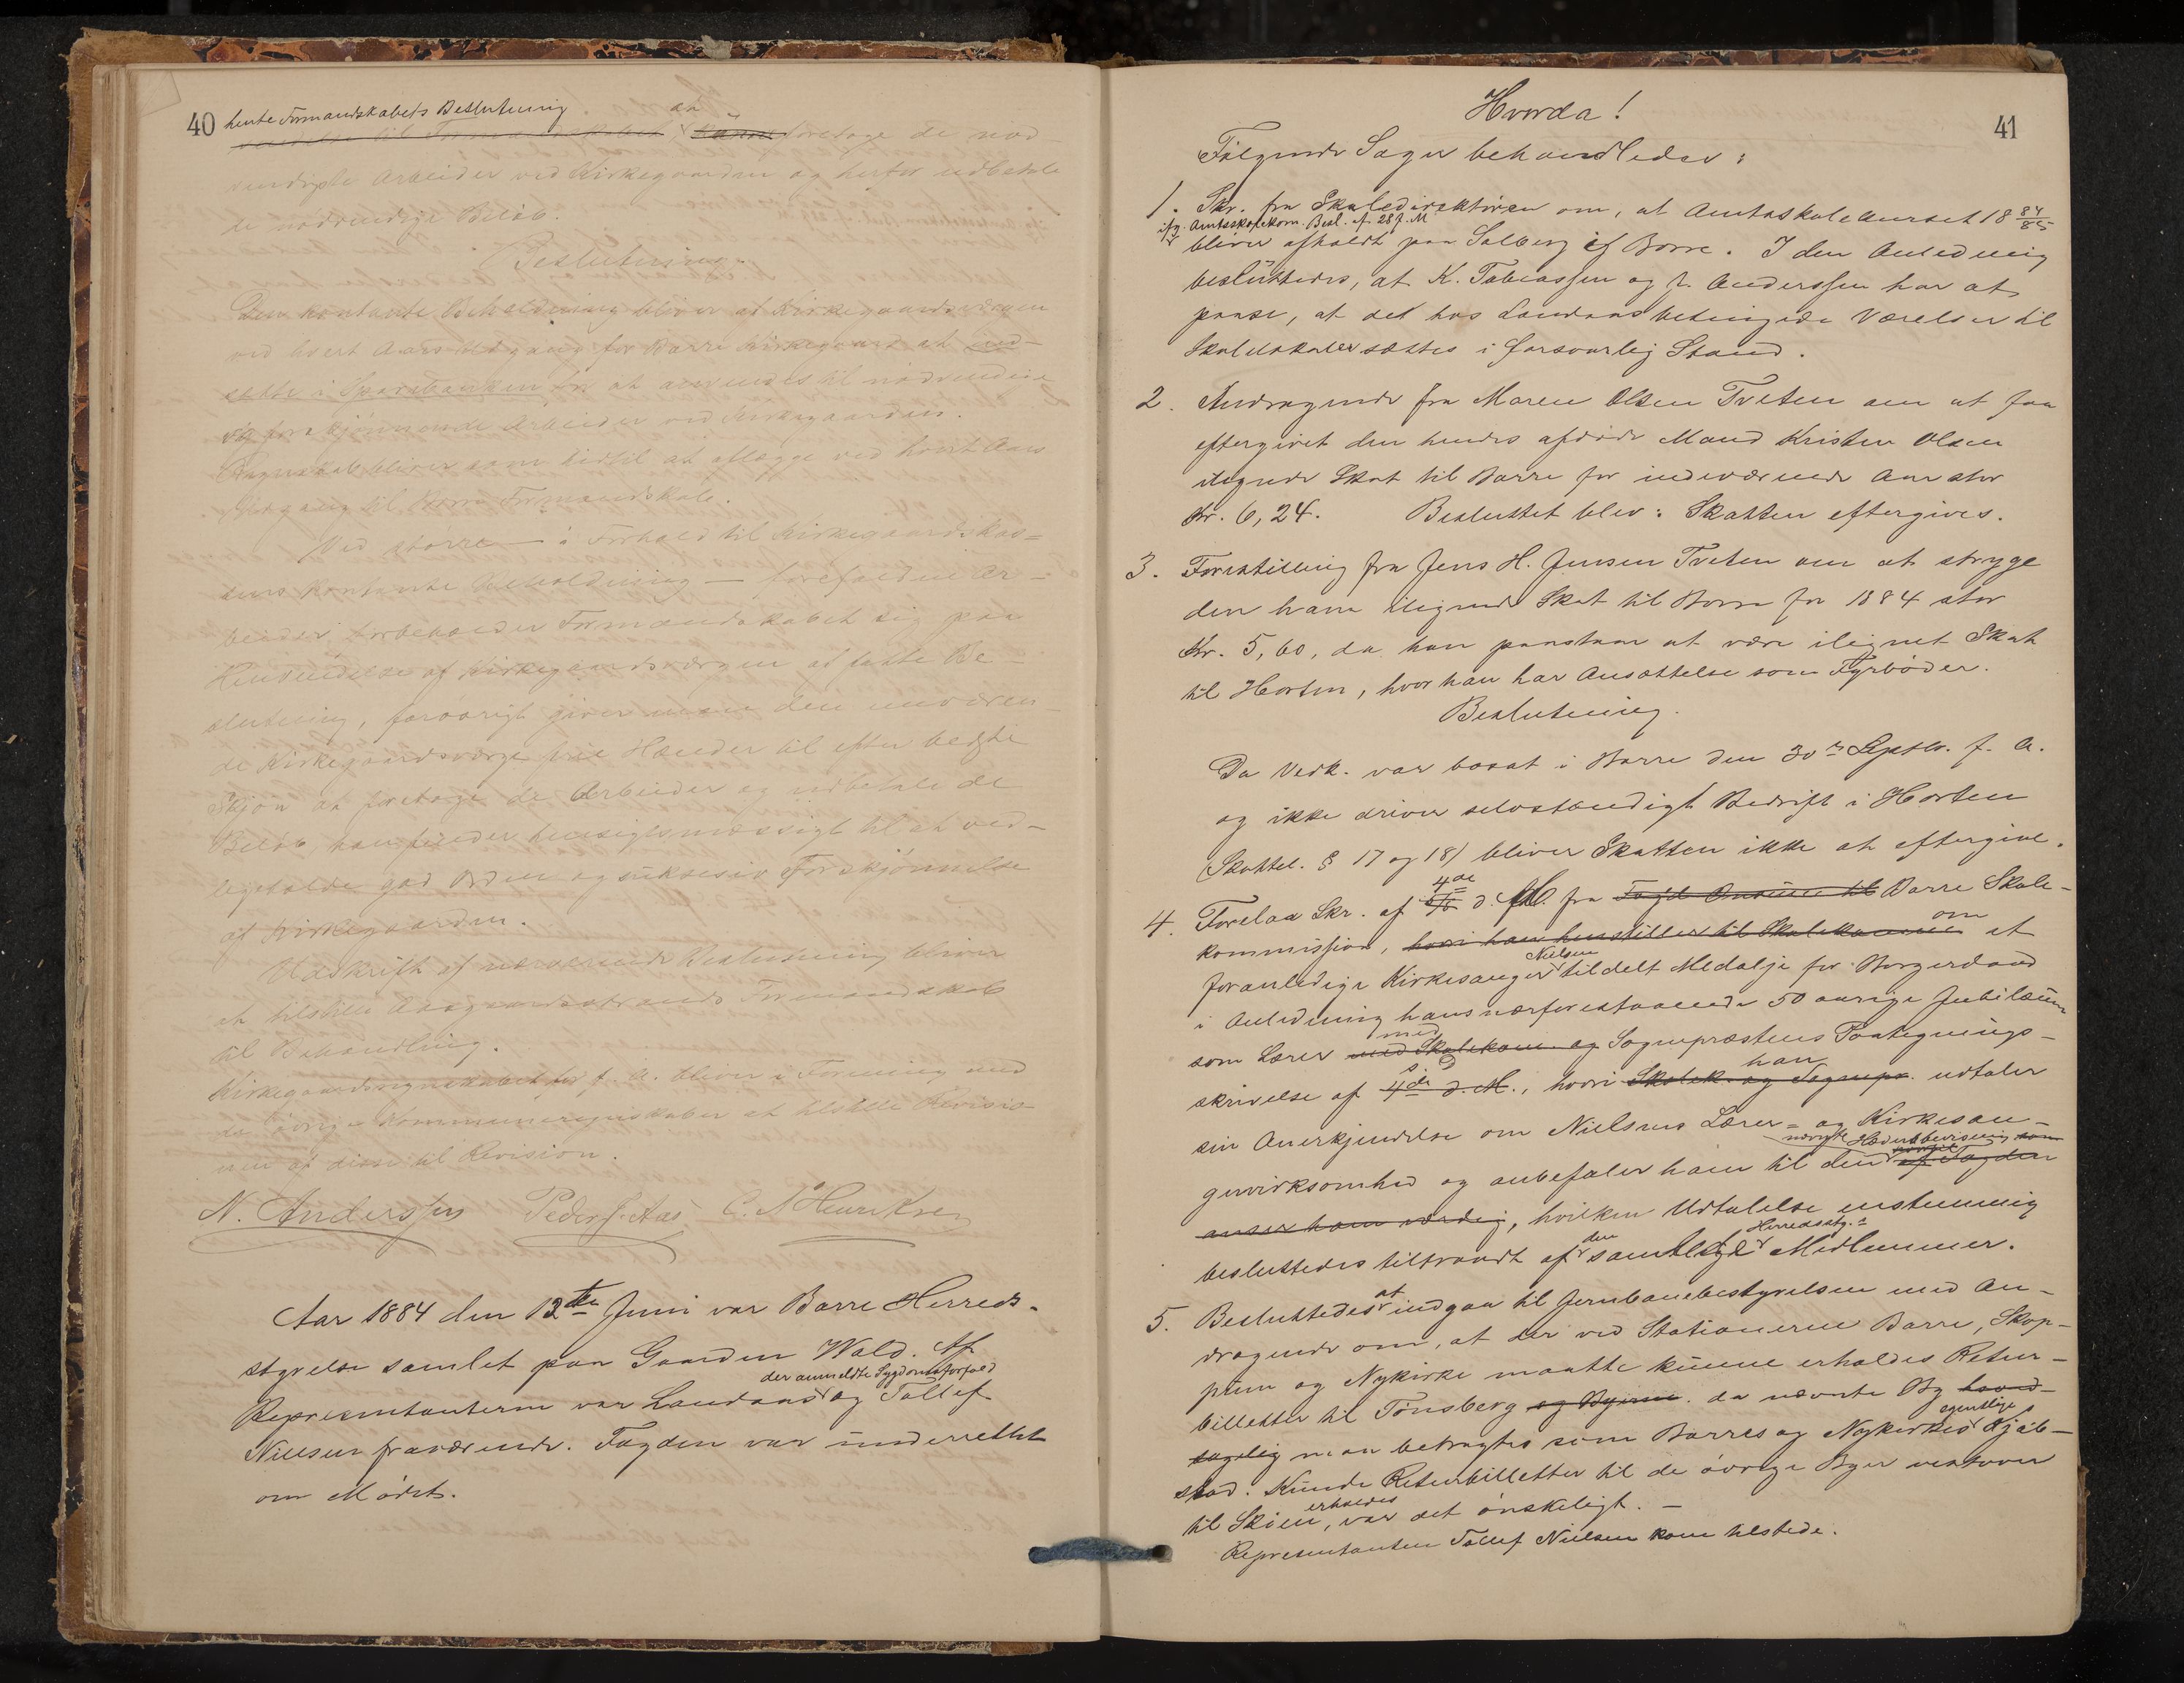 40 hente Formandskabets Beslutning
at foretage de nød-
vendigste Arbeider ved Kirkegaarden og herfor udbetale
de nødvendige Beløb.
Beslutning.
Den kontante Beholdning bliver af Kirkegaardsværgen
ved hvert Aars Udgang for Borre Kirkegaard at ind-
sætte i Sparebanken for at anvendes til nødvendige
og forskjønnende Arbeider ved Kirkegaarden.
Regnskab bliver som hidtil at aflægge ved hvert Aars
Udgang til Borre Formandskab.
Ved større – i Forhold til Kirkegaardskas=
sens kontante Beholdning – forefaldne Ar-
beider forbeholder Formandskabet sig paa
Henvendelse af Kirkegaardsværgen at fatte Be-
slutning, forøvrigt giver man den nuværen-
de Kirkegaardsværge frie Hænder til efter bedste
Skjøn at foretage de Arbeider og udbetale de
Beløb, han finder hensigtsmæssigt til at ved-
ligeholde god Orden og suksesiv Forskjønnelse
af Kirkegaarden.
Udskrift af nærværende Beslutning bliver
at tilstille Aasgaardsstrands Formandskab
til Behandling.
Kirkegaardsregnskabet for f. A. bliver i Forening med
de øvrige Kommuneregnskaber at tilstille Revisio-
nen at disse til Revision.
N. Anderssen Peder J. Aas C. N Henriksen
Aar 1884 den 12te Juni var Borre Herreds-
styrelse samlet paa Gaarden Wold. Af
der anmeldte Sygdomsforfald
Repræsentanterne var Laudaas og Tollef
Nielsen fraværende. Fogden var underrettet
om Mødet.
Hvorda!
41
Følgende Sager behandledes:
1. Skr. fra Skoledirektøren om, at Amtsskolekurset 18 84/85
ifg. Amtsskolekom. Besl. af 28 f. M
bliver afholdt paa Solberg i Borre. I den Anledning
besluttedes, at K. Tobiassen og N. Anderssen har at
paase, at det hos Laudaas betingede Værelser til
Skolelokaler sættes i forsvarlig Stand.
2. Andragende fra Maren Olsen Tveten om at faa
eftergivet den hendes afdøde Mand Kristen Olsen
ilignede Skat til Borre for indeværende Aar stor
Kr. 6,24. Besluttet blev: Skatten eftergives.
3. Forestilling fra Jens H. Jensen Tveten om at stryge
den ham ilignede Skat til Borre for 1884 stor
Kr. 5,60, da han paastaar at være ilignet Skat
til Horten, hvor han har Ansættelse som Fyrbøder.
Beslutning.
Da Vedk. var bosat i Borre den 30te Septbr. f. A.
og ikke driver selvstændigt Bedrift i Horten
(Skattel. § 17 og 18) bliver Skatten ikke at eftergive.
4de
4. Forelaa Skr. af d. M. fra Borre Skole-
om
kommission, hvori han henstiller til Skolekommis at
Nielsen
foranledige Kirkesanger tildelt Medalje for Borgerdaad
i Anledning hans nærforestaaende 50 aarige Jubilæum
med
som Lærer med Skolekom. og Sognepræstens Paategnings-
han
skrivelse af 4de d. M., hvori Skolek. og Sognepr. udtaler
sin Anerkjendelse om Nielsens Lærer= og Kirkesan-
nævnte Hædersbevisning som
gervirksomhed og anbefaler ham til den af Fogden
anser ham værdig, hvilken Udtalelse enstemmig
den Herredsstyr.s
besluttedes tiltraadt af samtlige Medlemmer.
at
5. Besluttedes indgaa til Jernbanebestyrelsen med An-
dragende om, at der ved Stationerne Borre, Skop-
pum og Nykirke maatte kunne erholdes Retur-
billetter til Tønsberg og Byerne. da nævnte By
egentlige
man betragtes som Borres og Nykirkes Kjøb-
stad. Kunde Returbilletter til de øvrige Byer vestover
erholdes
til Skien, var det ønskeligt. –
Repræsentanten Tollef Nielsen kom tilstede.